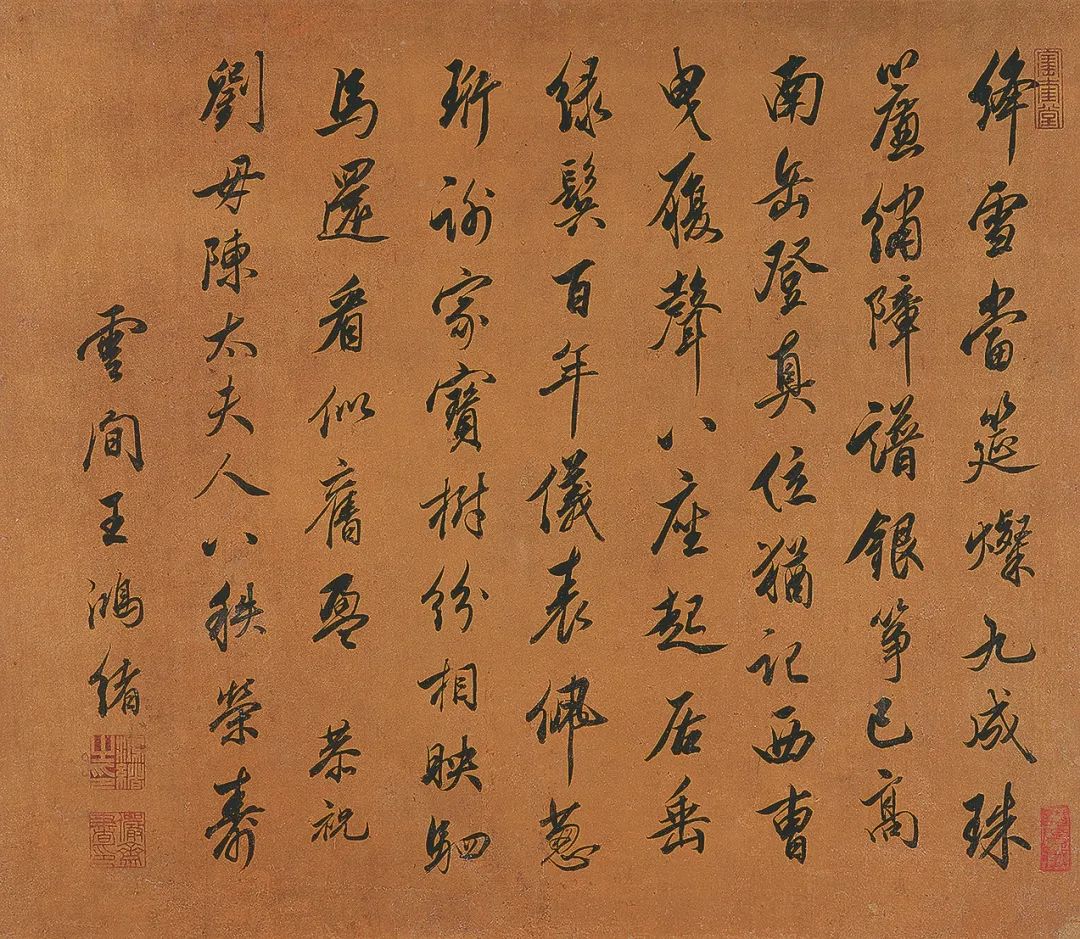 絳雪當筵燦九成珠
簾繡障譜銀箏已高
南岳登真位猶記西曹
曳履聲八座起居垂
綠鬢百年儀表佩蔥
珩謝家寶樹紛相映駟
馬還看似舊盈 恭祝
劉母陳太夫人八秩榮壽
雲間王鴻緒